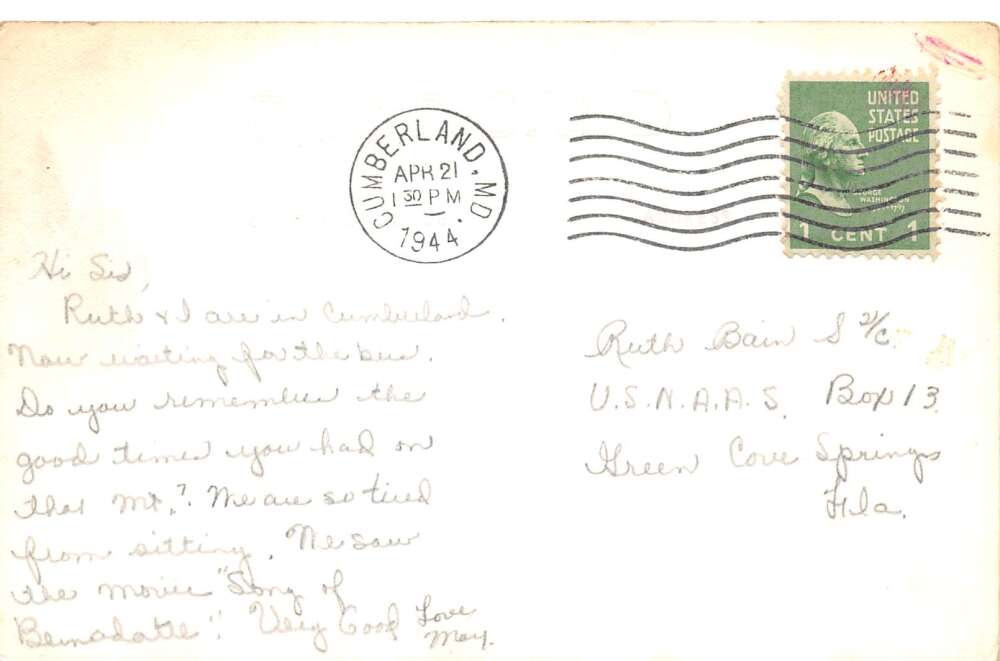 UNITED
STATES
POSTAGE
GEORGE
WASHINGTON
1 CENT 1
CUMBERLAND, MD.
APR 21
1 30 PM
1944
Hi Sis,
Ruth & I are in Cumberland.
Now waiting for the bus.
Do you remember the
good times you had on
that Mt.? We are so tired
from sitting. We saw
the movie "Song of
Bernadatte". Very Good
Love
May.
Ruth Bain S 2/c.
U.S.N.A.A.S. Box 13
Green Cove Springs
Fla.